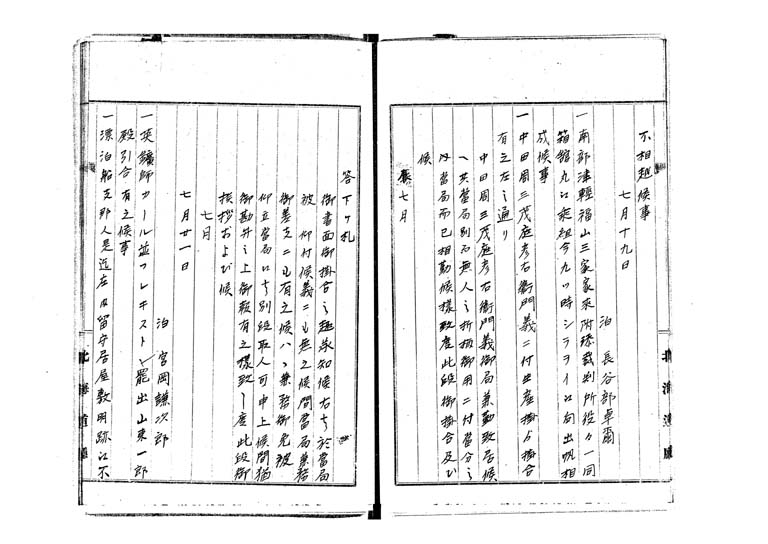 不相越候事
七月十九日
泊 長谷部卓爾
一南部津軽福山三家家来附添裁判所役々一同
箱館丸江乗組今九ツ時シラヲイ江向出帆相
成候事
一中田周三茂庭彦右衛門義ニ付出産掛ゟ掛合
有之左之通り
中田周三茂庭彦右衛門義御局兼勤致居候
へ共当局別而無人之折柄御用ニ付当分之
内当局而已相勤候様致度此段御掛合及び
候
七月
答下ケ札
御書面御掛合之趣承知候右者於当局
被 仰付候義ニも無之候間当局兼務
御差支ニも有之候ハヽ兼務御免被
仰立当局江者別段取人可申上候間猶
御勘弁之上御報有之様致し度此段御
挨拶および候
七月
七月廿一日
泊 宮岡謙次郎
一英鑛師カール並フレキストン罷出山東一郎
殿引合有之候事
一漂泊船支那人是迄左 留守居屋敷明跡江不
北海道廳
北海道廳